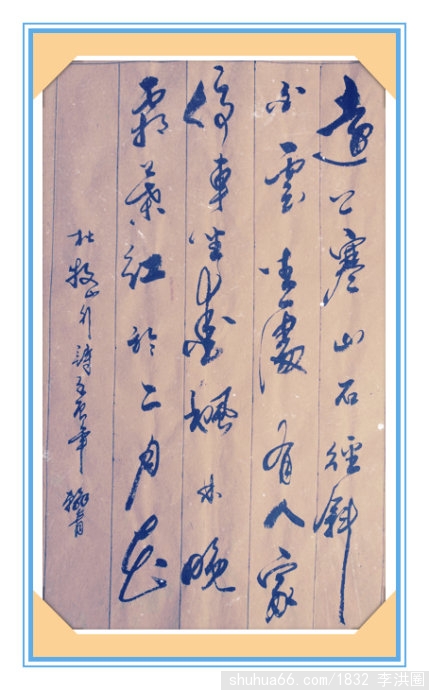 遠上寒山石徑斜
白雲生處有人家
停車坐愛楓林晚
霜葉紅於二月花
杜牧山行詩 年
shuhua66.com/1832 李洪